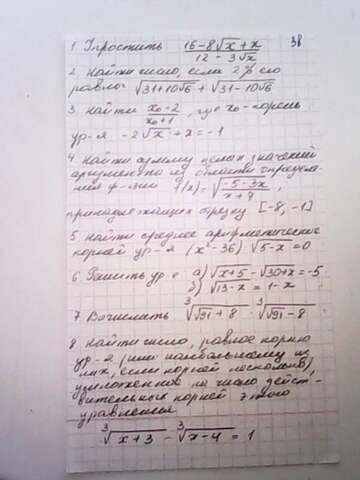 38
1 Упростить (16-8√x+x)/(12-3√x)
2 Найти число, если 2% его
равны √(31+10√6) + √(31-10√6)
3 Найти (x₀-2)/(x₀+1), где x₀-корень
ур-я -2√x+x=-1
4 Найти сумму целых значений
аргумента из области определе-
ния ф-ции f(x)=√((-5-3x)/(x+7)),
принадлежащих отрезку [-8,-1]
5 Найти среднее арифметическое
корней ур-я (x²-36)·√(5-x)=0
6 Решить ур-е а) √(x+5)-√(30+x)=-5
б) √(13-x)=1-x
7 Вычислить ∛(√91+8) · ∛(√91-8)
8 Найти число, равное корню
ур-я (или наибольшему из
них, если корней несколько),
умноженное на число дейст-
вительных корней этого
уравнения
∛(x+3) - ∛(x-4) = 1